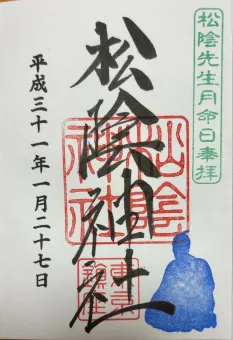 松陰先生月命日奉拝
松陰神社
松陰神社
平成三十一年一月二十七日